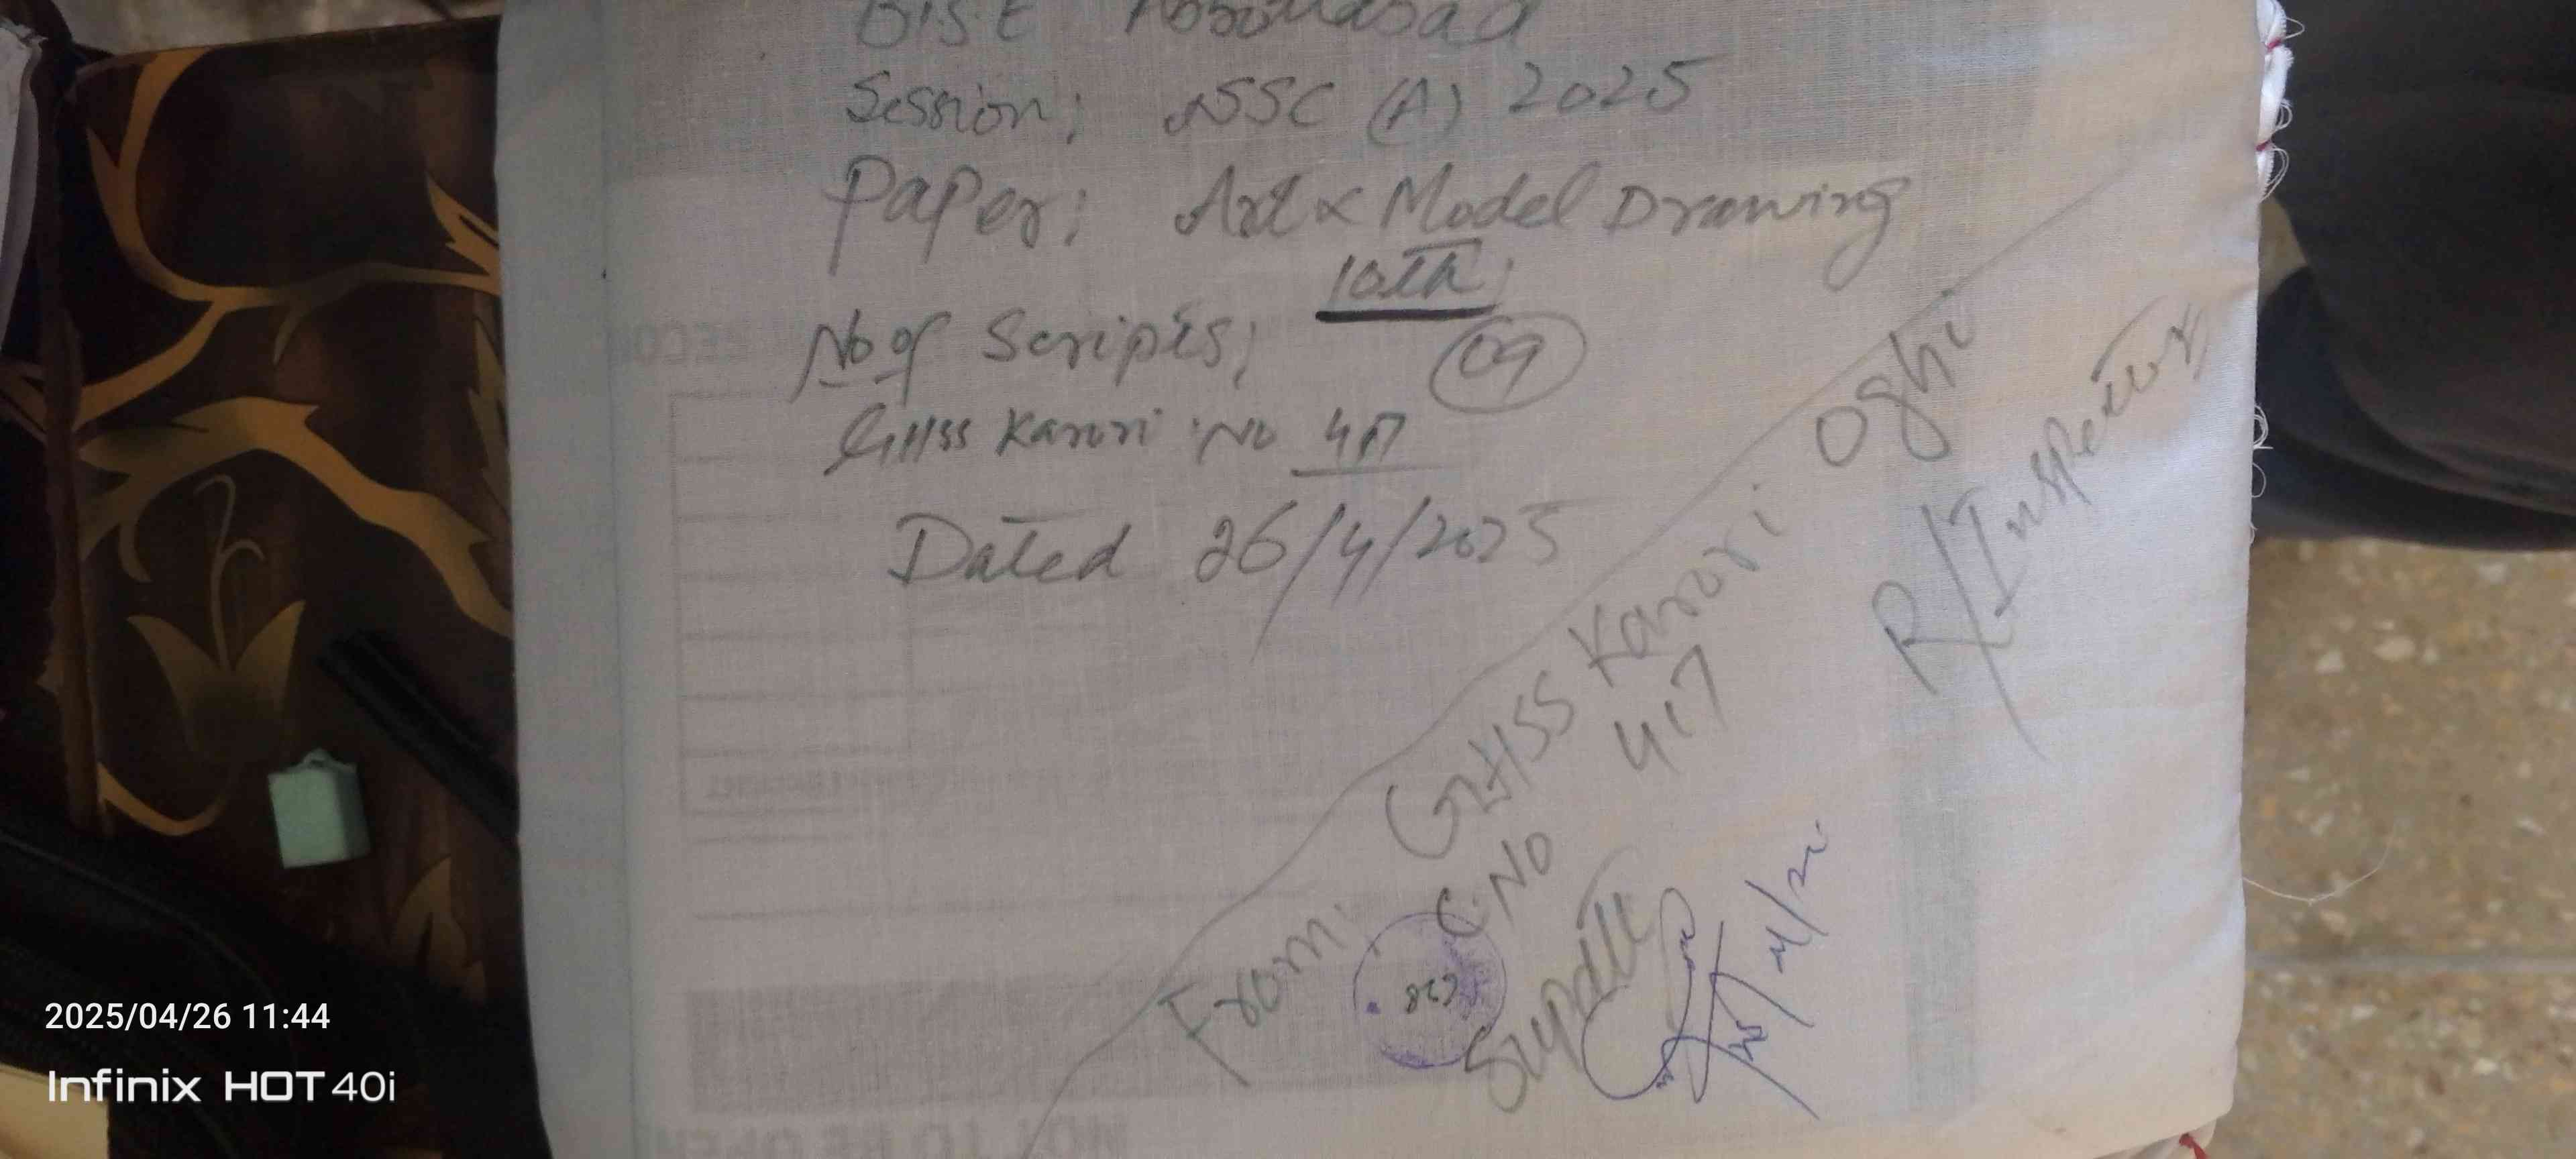 BISE Abbottabad
Session; SSC (A) 2025
Paper; Art & Model Drawing
10th
No of Scripts; 09
GHSS Karori No 417
Dated 26/4/2025
From: GHSS Karori Oghi
C.No 417
Supdtt
R/Inspector
628
2025/04/26 11:44
Infinix HOT 40i